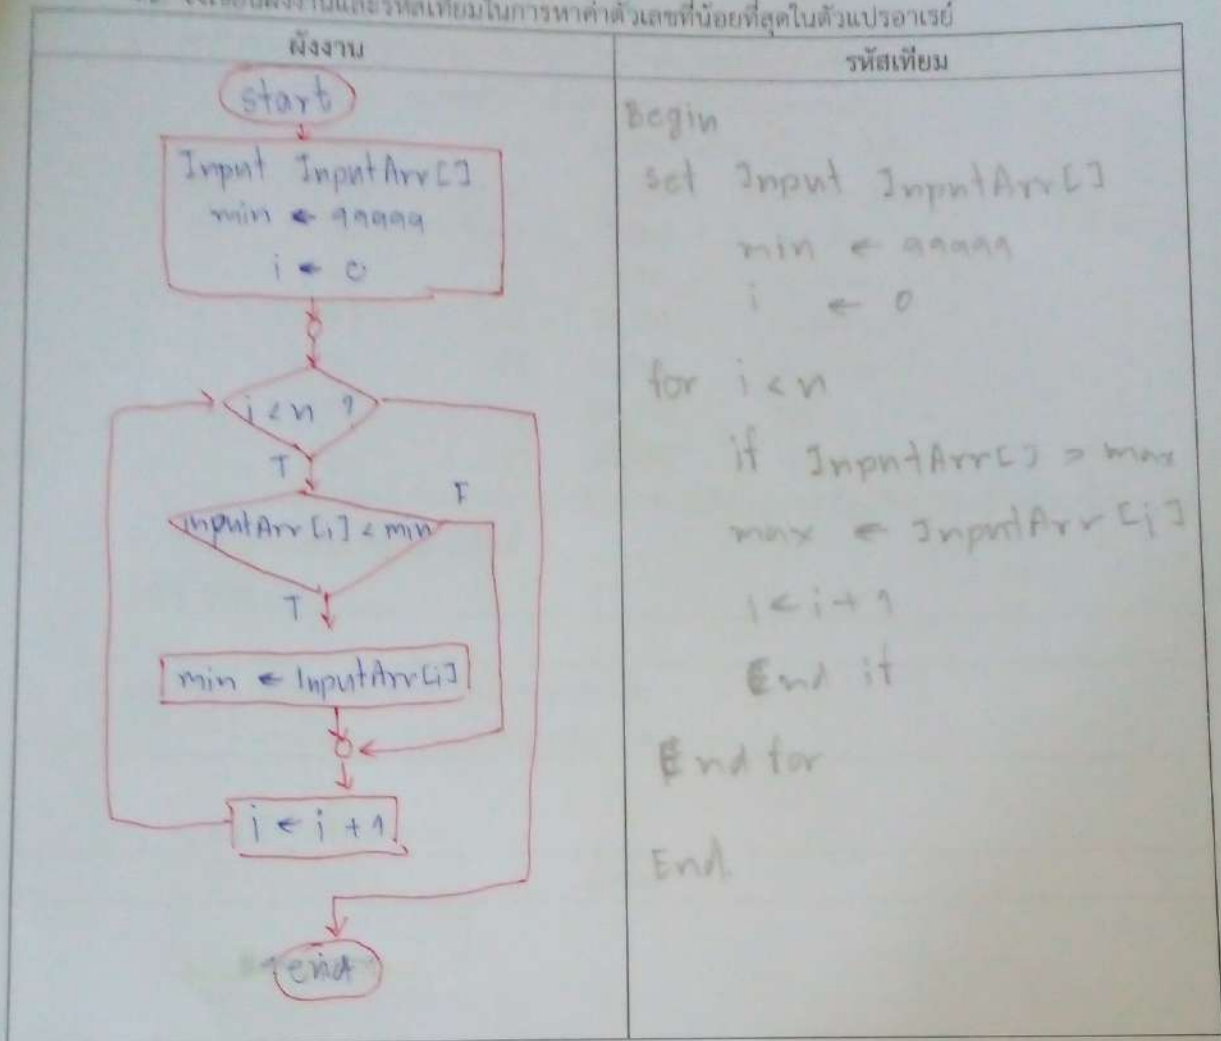 จงเขียนผังงานและรหัสเทียมในการหาค่าตัวเลขที่น้อยที่สุดในตัวแปรอาเรย์
ผังงาน
start
Input InputArr[]
min ← 99999
i ← 0
i < n ?
T
F
inputArr[i] < min
T
min ← InputArr[i]
i ← i + 1
end
รหัสเทียม
Begin
set Input InputArr[]
min ← 99999
i ← 0
for i < n
if InputArr[] > max
max ← InputArr[i]
i < i + 1
End if
End for
End